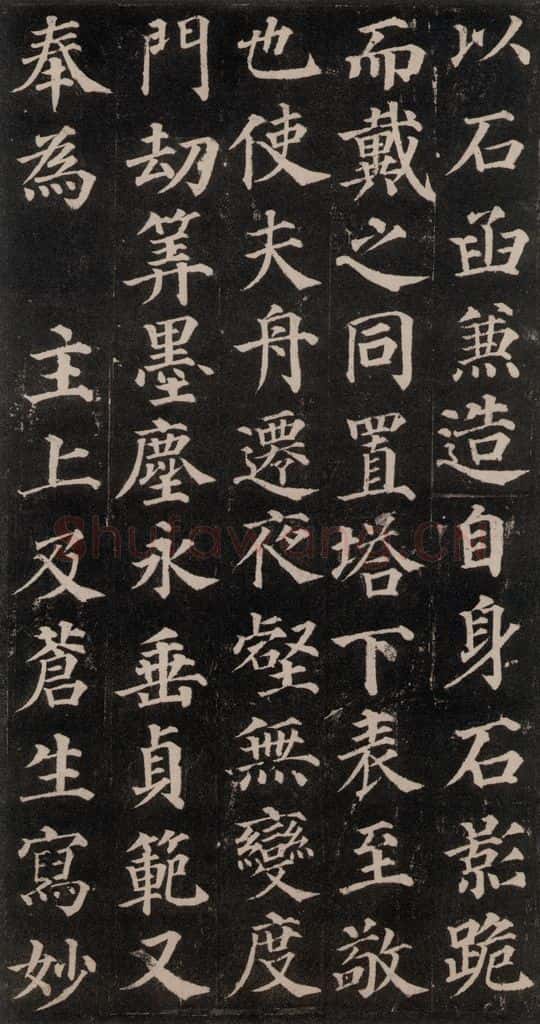 以石臿兼造自身石影跪
而戴之同置塔下表至敬
也使夫舟遷夜壑無變度
門劫筭墨塵永垂貞範又
奉為 主上及蒼生寫妙
shufawang.cn